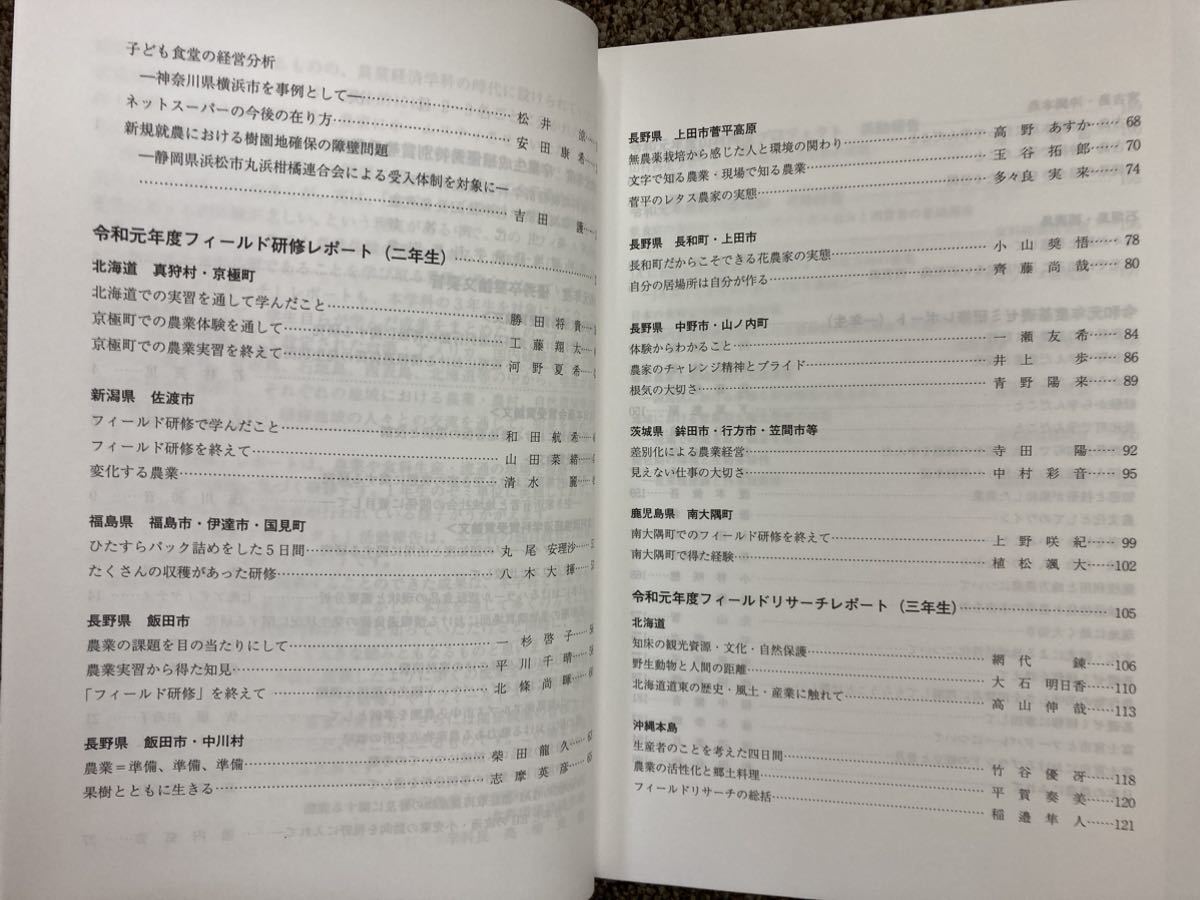 子ども食堂の経営分析
―神奈川県横浜市を事例として―……松井 涼
ネットスーパーの今後の在り方……安田康希
新規就農における樹園地確保の障壁問題
―静岡県浜松市丸浜柑橘連合会による受入体制を対象に―
……吉田 護
令和元年度フィールド研修レポート（二年生）……
北海道 真狩村・京極町
北海道での実習を通して学んだこと……勝田将貴
京極町での農業体験を通して……工藤翔太
京極町での農業実習を終えて……河野夏希
新潟県 佐渡市
フィールド研修で学んだこと……和田航希
フィールド研修を終えて……山田菜緒
変化する農業……清水 麗
福島県 福島市・伊達市・国見町
ひたすらパック詰めをした５日間……丸尾安理沙
たくさんの収穫があった研修……八木大揮
長野県 飯田市
農業の課題を目の当たりにして……一杉啓子
農業実習から得た知見……平川千晴
「フィールド研修」を終えて……北條尚暉
長野県 飯田市・中川村
農業＝準備、準備、準備……柴田龍久……
果樹とともに生きる……志摩英彦……65
長野県 上田市菅平高原
無農薬栽培から感じた人と環境の関わり……高野あすか……68
文字で知る農業・現場で知る農業……玉谷拓郎……70
菅平のレタス農家の実態……多々良実来……74
長野県 長和町・上田市
長和町だからこそできる花農家の実態……小山奨悟……78
自分の居場所は自分が作る……齊藤尚哉……80
長野県 中野市・山ノ内町
体験からわかること……一瀬友希……84
農家のチャレンジ精神とプライド……井上 歩……86
根気の大切さ……青野陽来……89
茨城県 鉾田市・行方市・笠間市等
差別化による農業経営……寺田 陽……92
見えない仕事の大切さ……中村彩音……95
鹿児島県 南大隅町
南大隅町でのフィールド研修を終えて……上野咲紀……99
南大隅町で得た経験……植松颯大……102
令和元年度フィールドリサーチレポート（三年生）……105
北海道
知床の観光資源・文化・自然保護……網代 錬……106
野生動物と人間の距離……大石明日香……110
北海道道東の歴史・風土・産業に触れて……高山伸哉……113
沖縄本島
生産者のことを考えた四日間……竹谷優冴……118
農業の活性化と郷土料理……平賀奏美……120
フィールドリサーチの総括……稲邉隼人……121